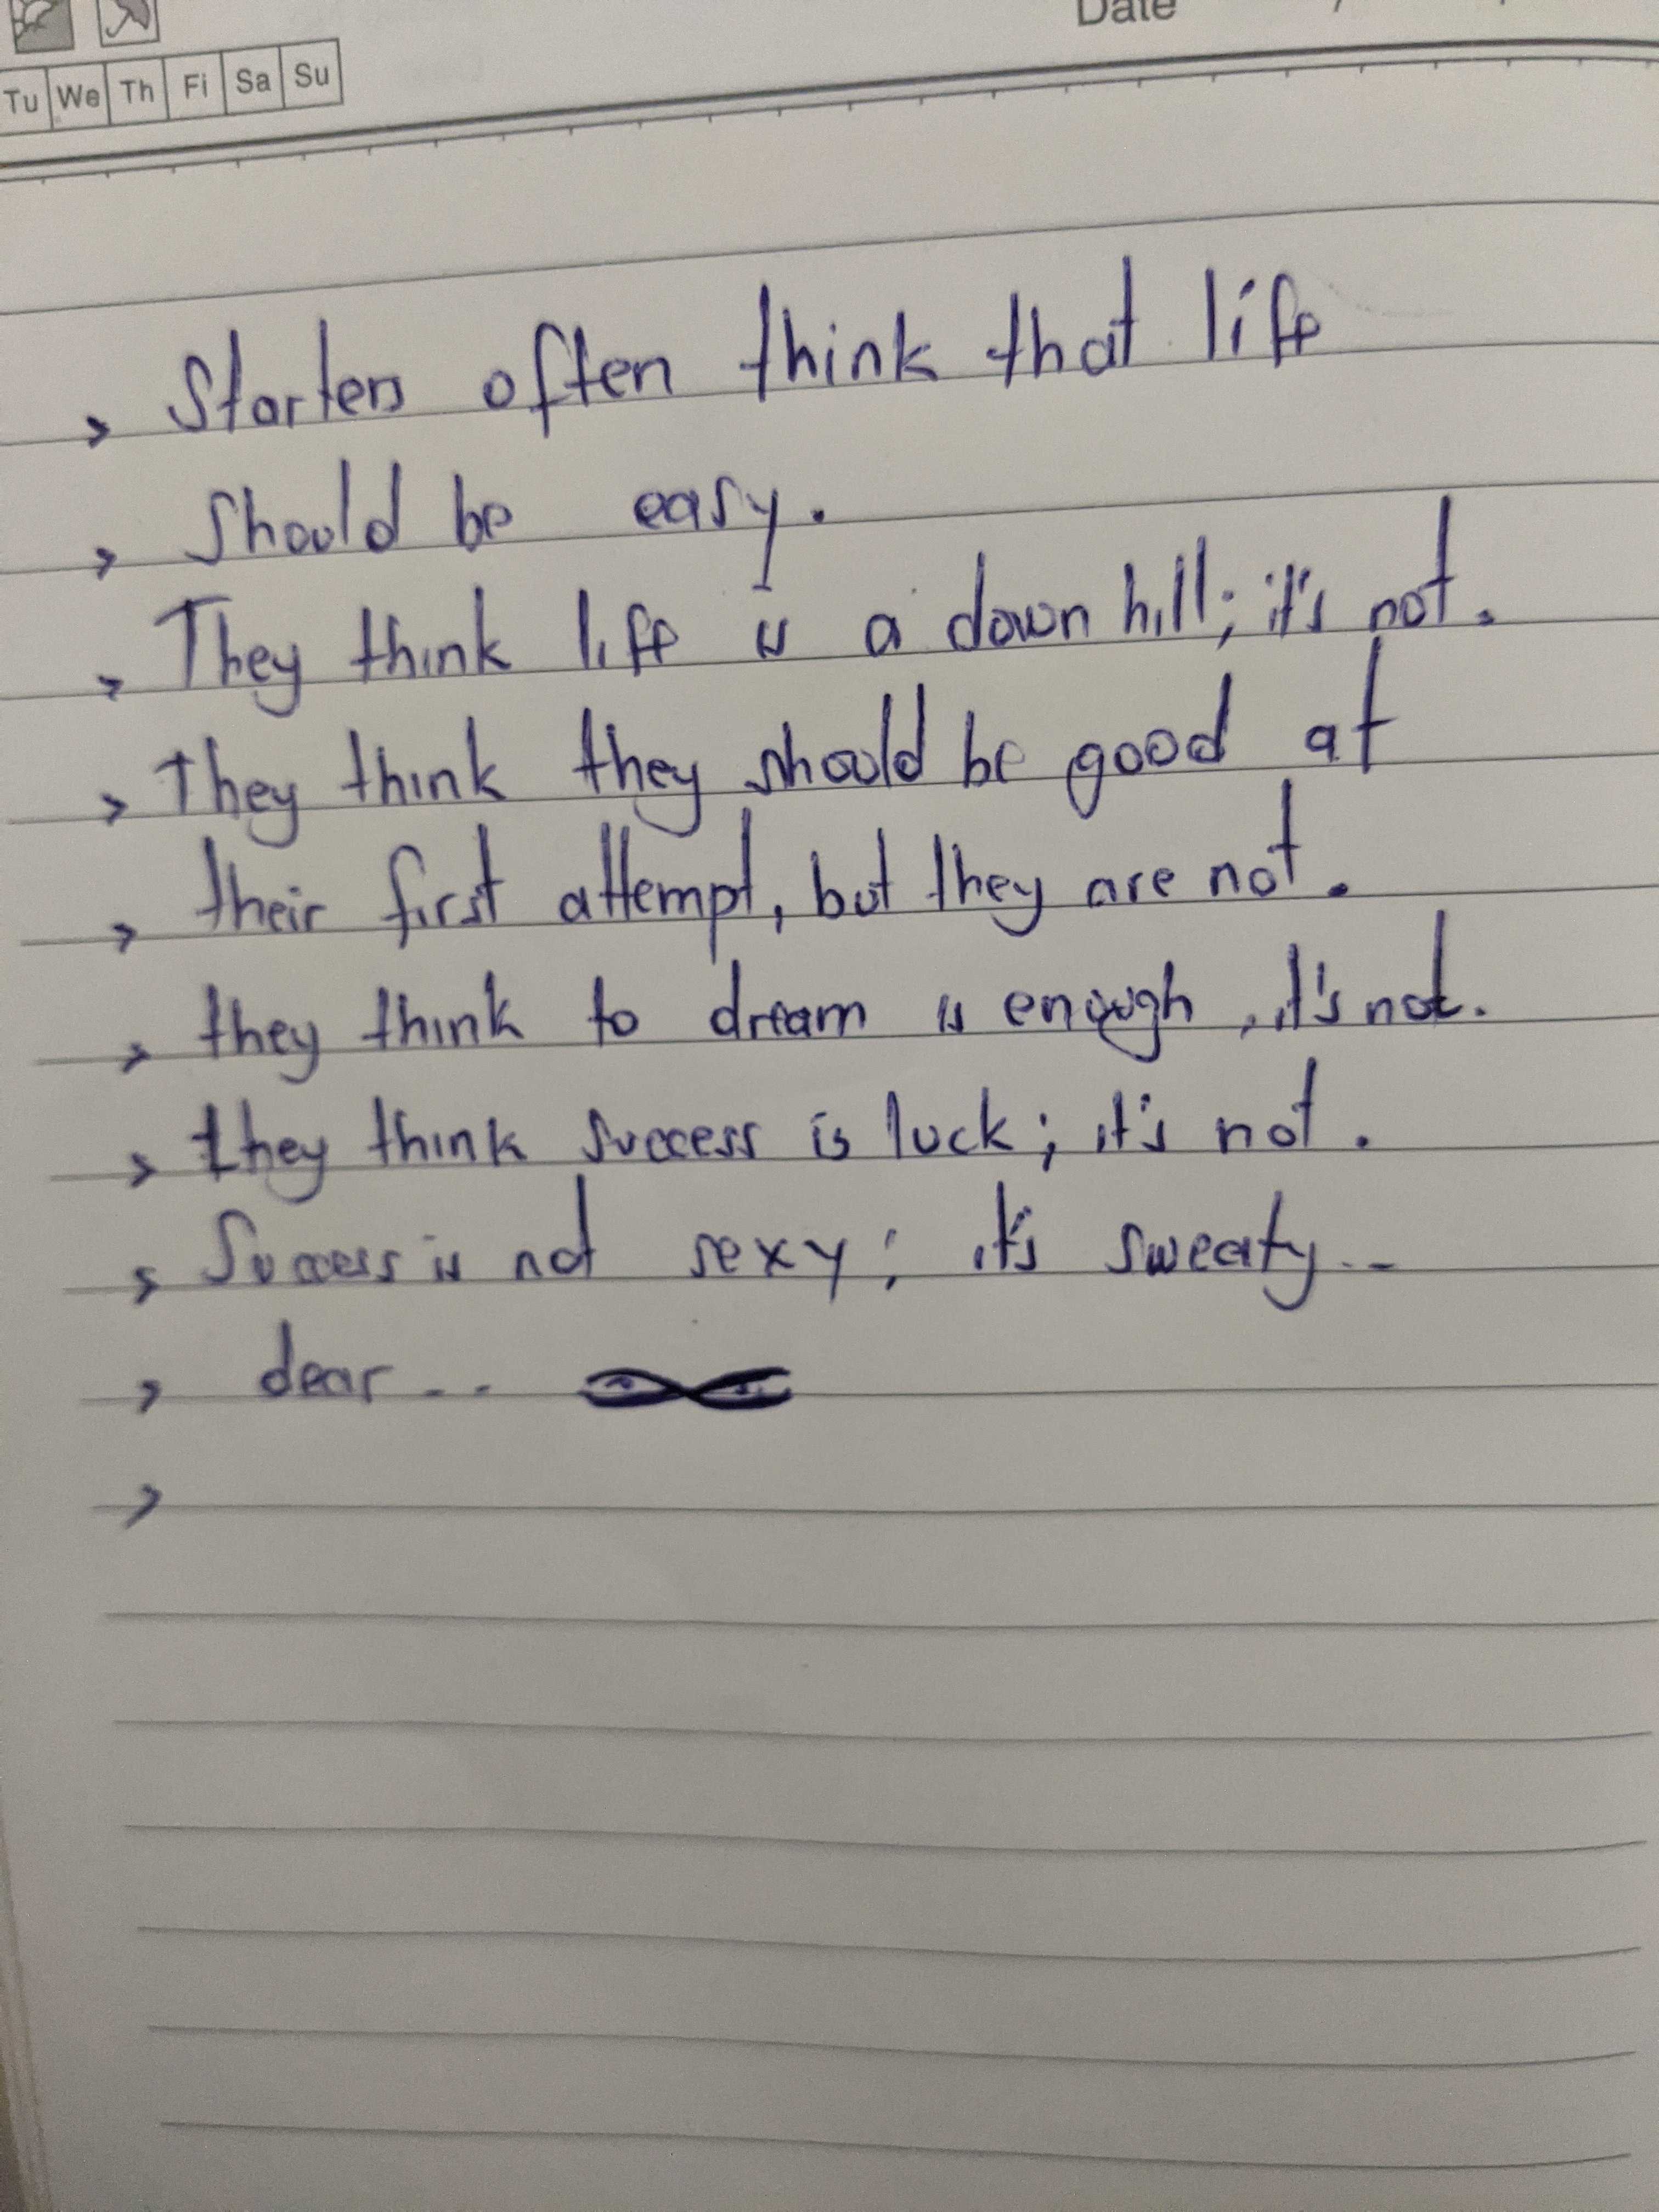 Date /
Tu We Th Fi Sa Su
> Starters often think that life
> should be easy.
> They think life is a down hill; it's not.
> They think they should be good at
> their first attempt, but they are not.
> they think to dream is enough, it's not.
> they think success is luck; it's not.
> Success is not sexy; it's sweaty..
> dear...
>